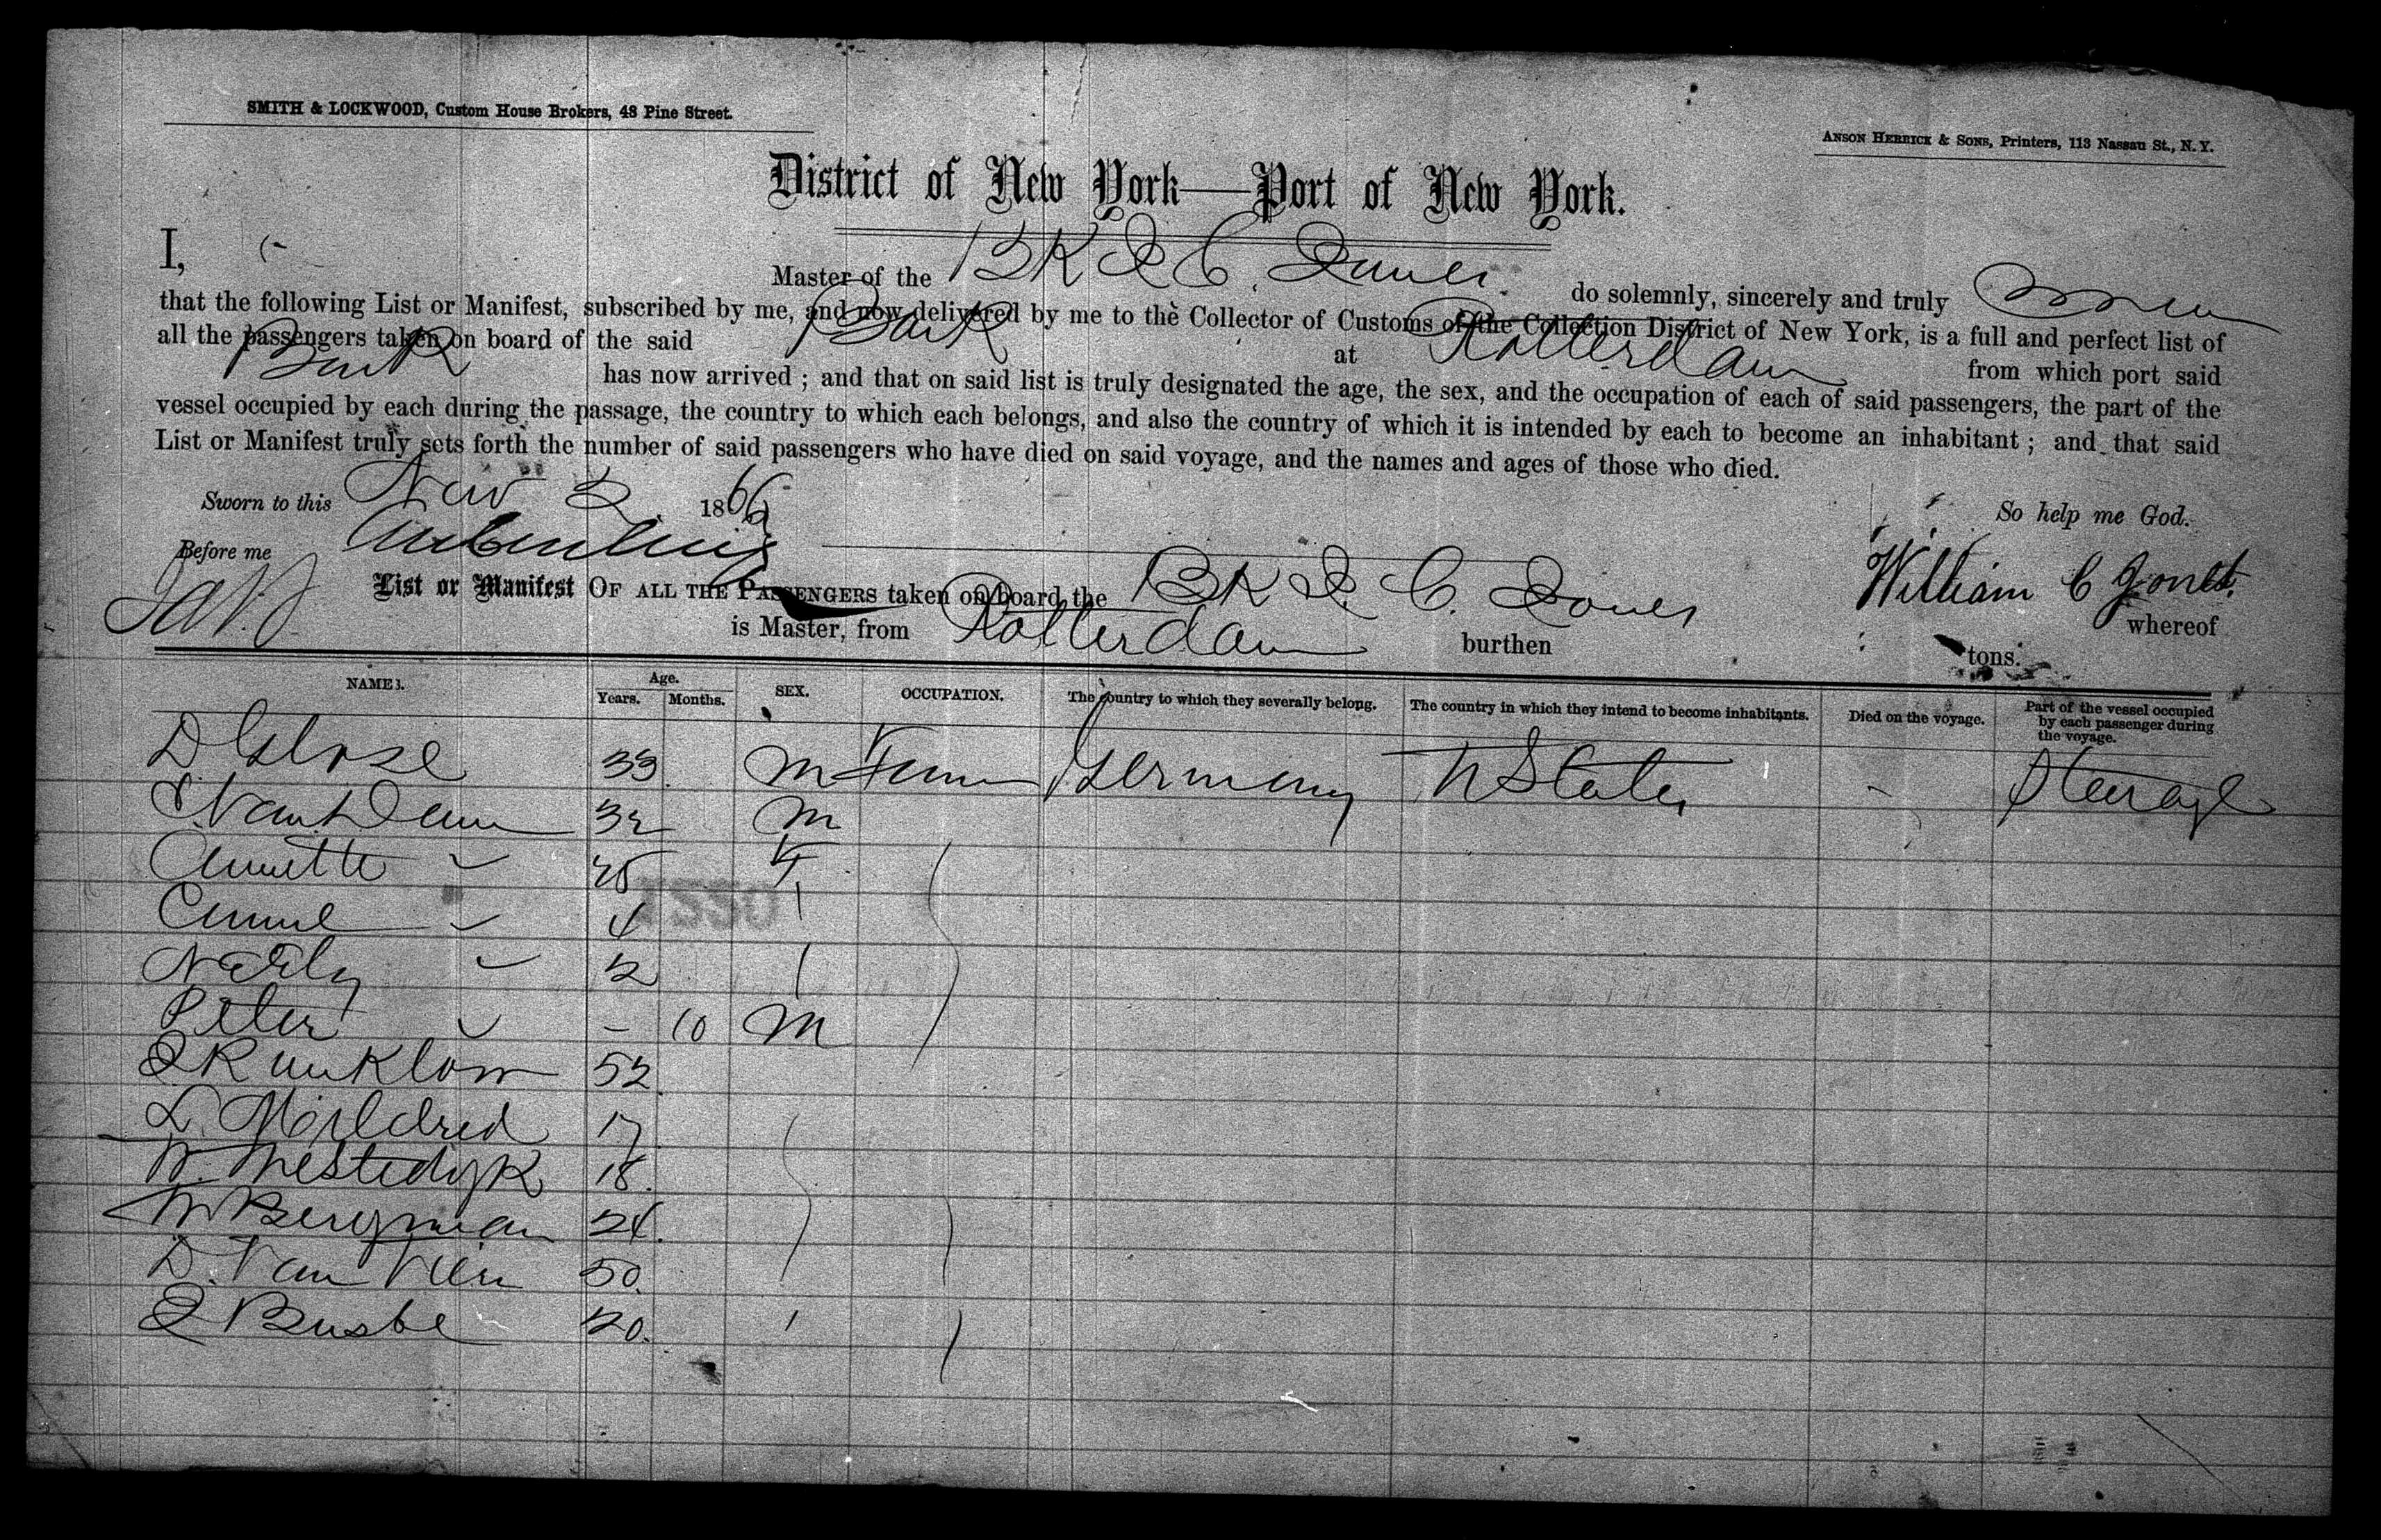 SMITH & LOCKWOOD, Custom House Brokers, 48 Pine Street.
ANSON HERRICK & SONS, Printers, 113 Nassau St., N.Y.
District of New York—Port of New York.
I, Master of the BK I C do solemnly, sincerely and truly
that the following List or Manifest, subscribed by me, and now delivered by me to the Collector of Customs of the Collection District of New York, is a full and perfect list of
all the passengers taken on board of the said Bark at Rotterdam from which port said
Bark has now arrived ; and that on said list is truly designated the age, the sex, and the occupation of each of said passengers, the part of the
vessel occupied by each during the passage, the country to which each belongs, and also the country of which it is intended by each to become an inhabitant ; and that said
List or Manifest truly sets forth the number of said passengers who have died on said voyage, and the names and ages of those who died.
Sworn to this Nov 2 1866 So help me God.
Before me William C Jones.
List or Manifest OF ALL THE PASSENGERS taken on board the BK I. C. whereof
is Master, from Rotterdam burthen tons.
NAMES. Age. Years. Months. SEX. OCCUPATION. The country to which they severally belong. The country in which they intend to become inhabitants. Died on the voyage. Part of the vessel occupied by each passenger during the voyage.
D Close 33 M Germany U States - Steerage
32 M
Annette 25 F
4
2
Peter - 10 M
52
L. Mildred 17
W. Mestedyk 18
M Bergman 24
D. Van Veen 50
Busbe 20